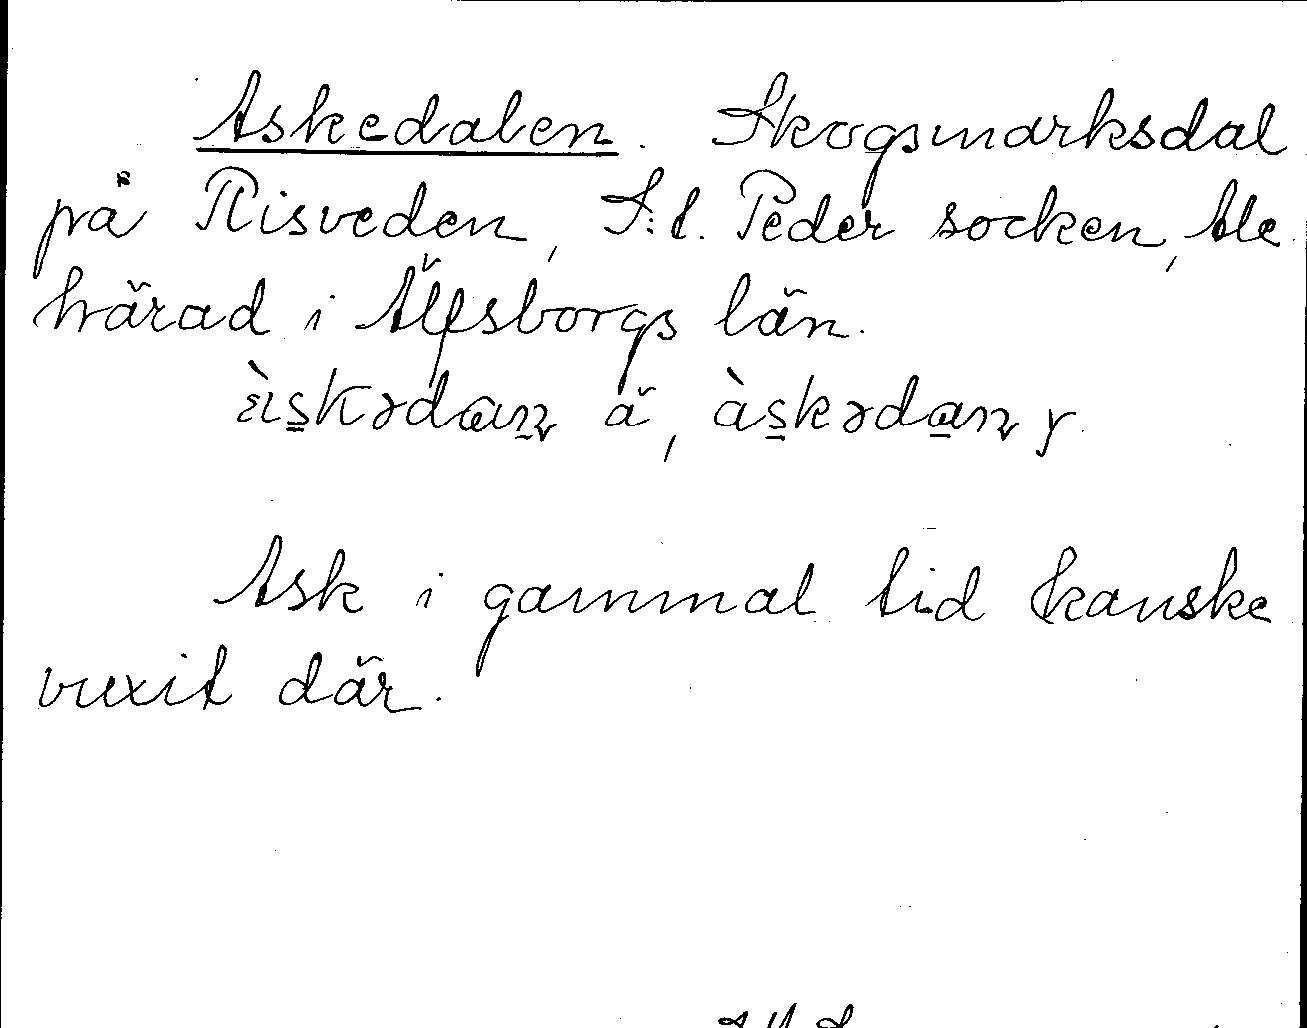 Askedalen. Skogsmarksdal
på Risveden, S:t. Peder socken, Ale
härad i Älfsborgs län.
ä, y
Ask i gammal tid kanske
vuxit där.